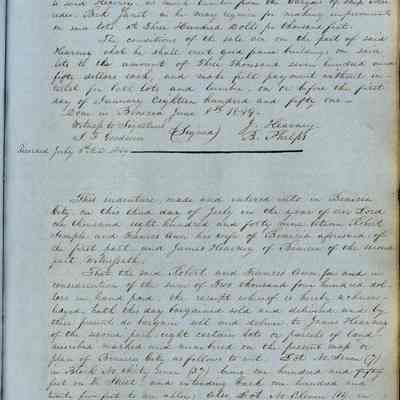 to said Hearney, as much lumber from the cargo of ship
Bark Janet as he may require for making improvements
on said lots, at three Hundred Dolls per thousand feet.
The conditions of the sale are on the part of said
Hearney that he shall erect good frame buildings on said
lots to the amount of Three thousand seven hundred and
fifty dollars each, and make full payment without in-
terest for both lots and lumber, on or before the first
day of January Eighteen hundred and fifty one—
Done in Benicia June 8th 1849.
Witness to Signature
(Signed)
J. Hearney
B. Phelps
S. Goodwin
Recorded July 3d
This indenture made and entered into in Benicia
City on this third day of July in the year of our Lord
one thousand eight hundred and forty nine between Robert
Semple and Frances Ann his wife of Benicia aforesaid of
the first part and James Hearney of Benicia of the second
part, Witnesseth,
That the said Robert and Frances Ann for and in
consideration of the sum of Two thousand four hundred dol-
lars in hand paid, the receipt whereof is hereby acknow-
ledged, hath this day bargained sold and delivered and by
these presents do bargain sell and deliver to James Hearney
of the second part eight certain lots or parcels of land
described marked and numbered on the present map or
plan of Benicia City as follows to wit. Lot No Seven (7)
in Block No thirty Seven (37) being one hundred and fifty
feet on K Street and extending back one hundred and
twenty five feet to an alley; Also Lot No Eleven (11) in